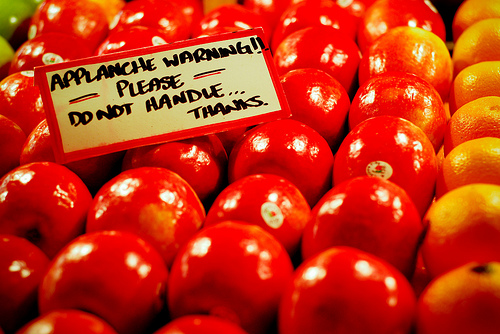 APPLANCHE WARNING!!
— PLEASE —
DO NOT HANDLE...
THANKS.